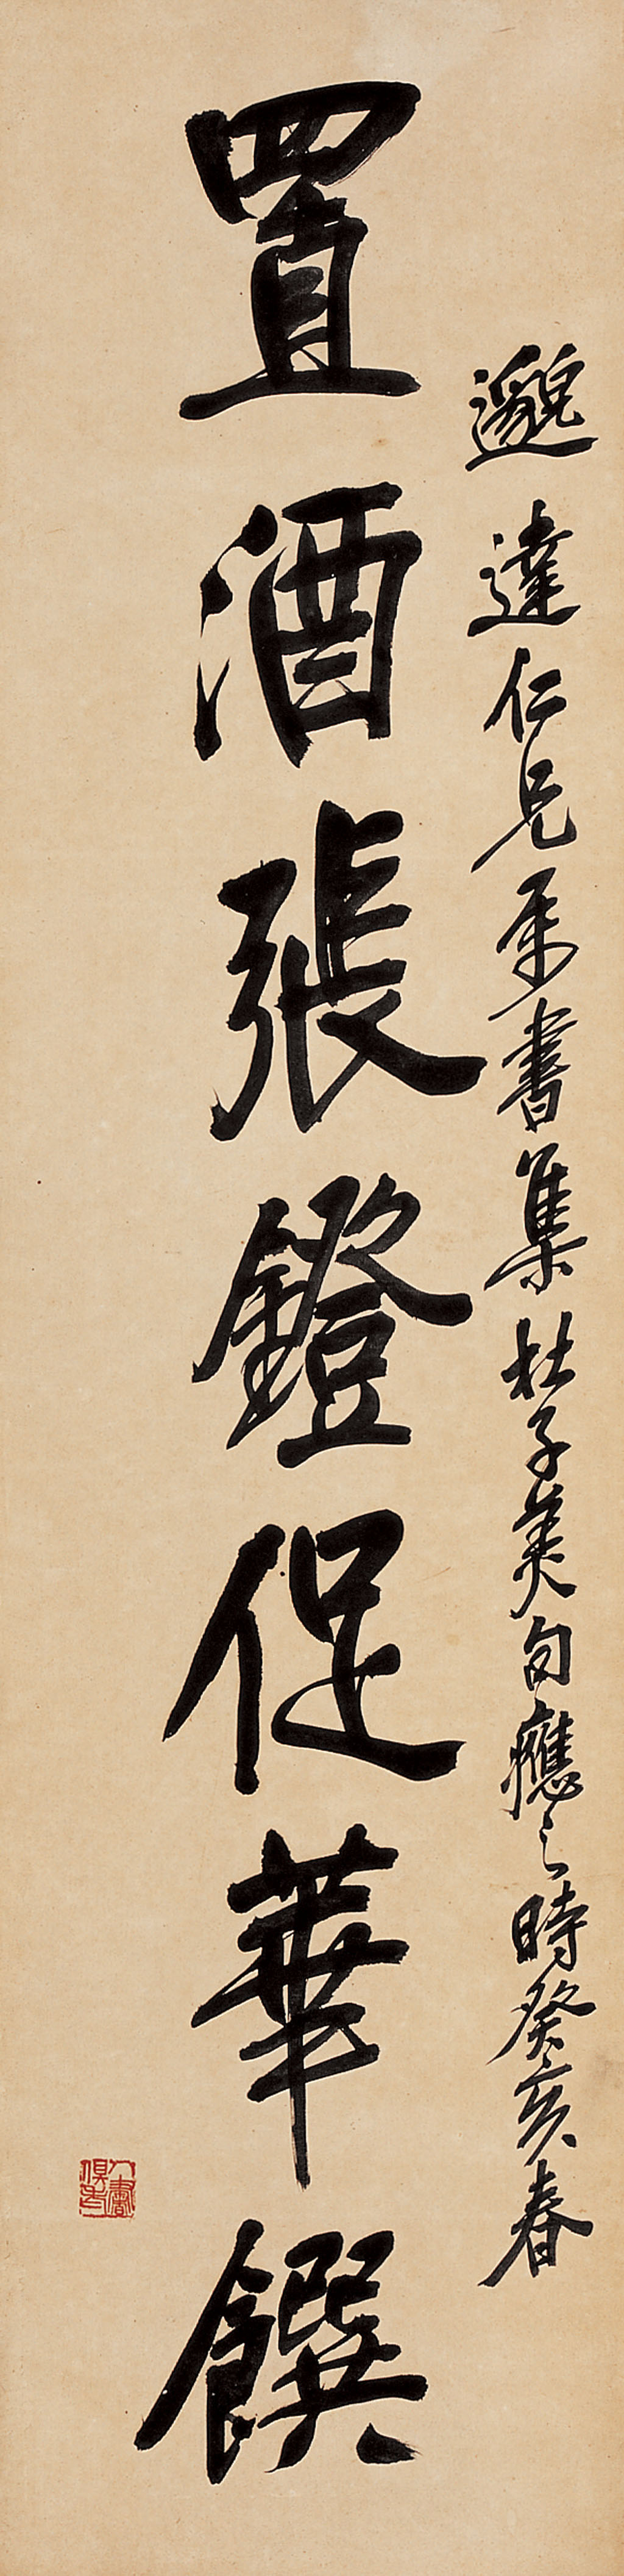 邈達仁兄屬書集杜子美句應之時癸亥春
置酒張鐙促華饌
人書俱老